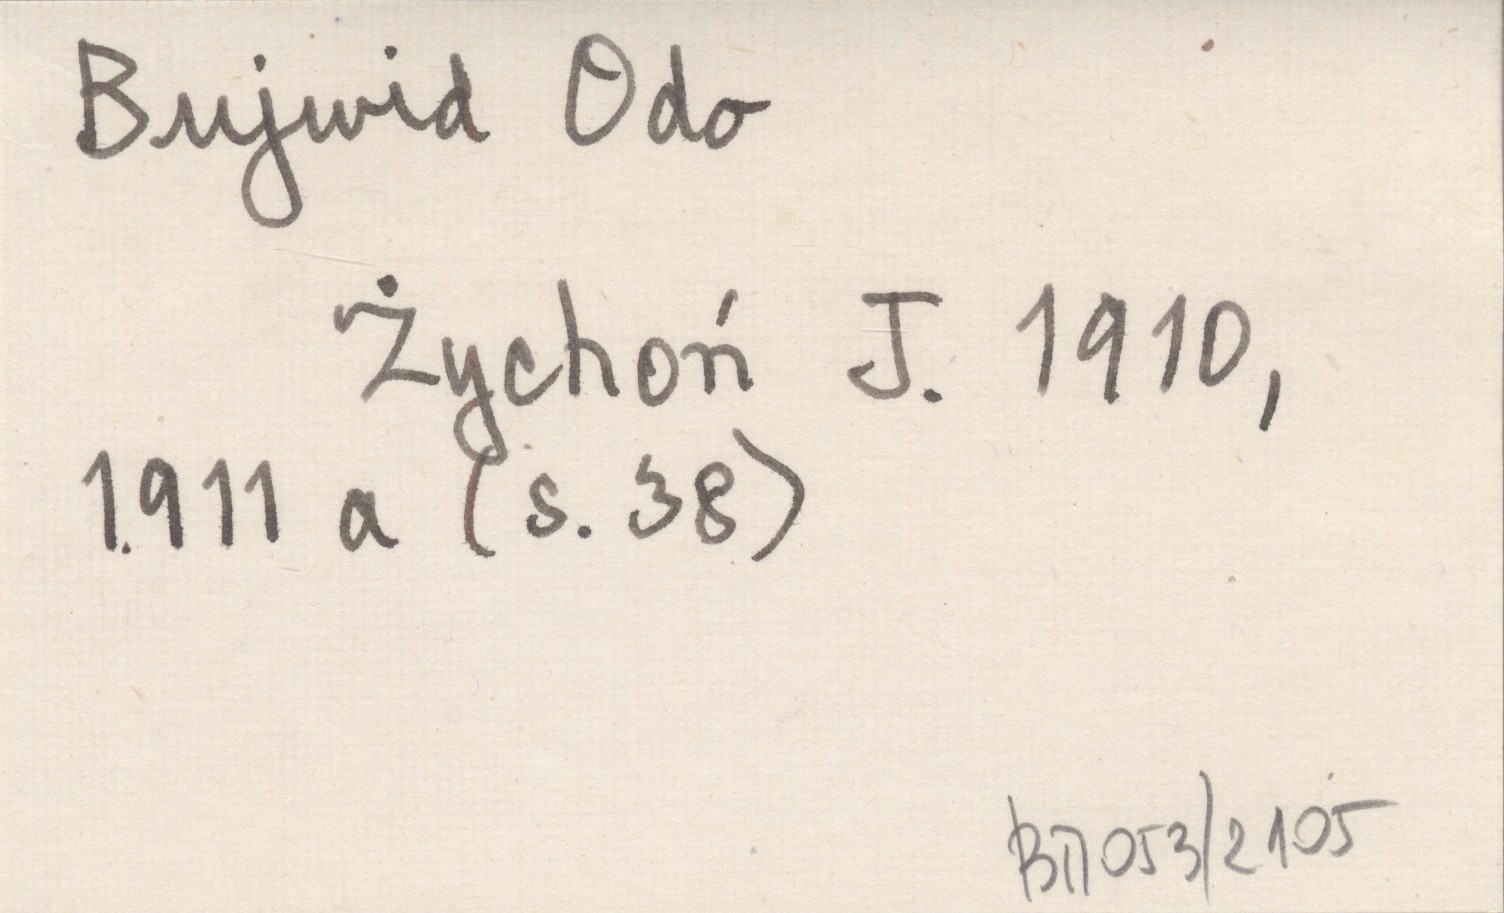 Bujwid Odo
Żychoń J. 1910,
1911 a (s. 38)
BII053/2105